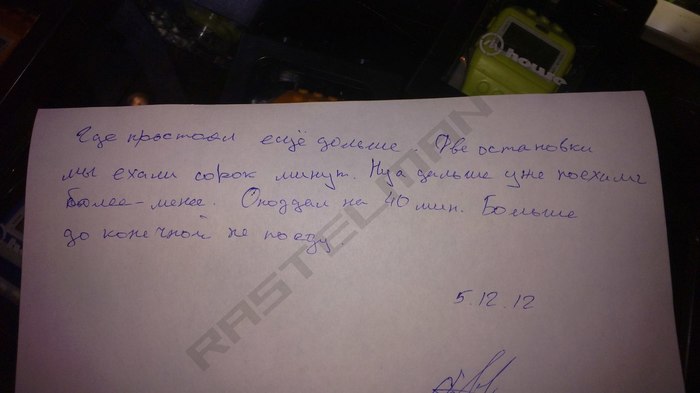 где простоял ещё дольше. Две остановки
мы ехали сорок минут. Ну а дальше уже поехали
более-менее. Опоздал на 40 мин. Больше
до конечной не поеду.
5.12.12
RASTELMAN